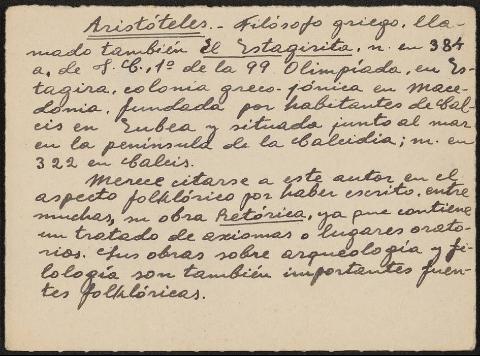 Aristóteles.- Filósofo griego, lla-
mado también El Estagirita, n. en 384
a. de J. C., 1º de la 99 Olimpíada, en Es-
tagira, colonia greco-jónica en Mace-
donia, fundada por habitantes de Cal-
cis en Eubea y situada junto al mar
en la península de la Calcidia; m. en
322 en Calcis.
Merece citarse a este autor en el
aspecto folklórico por haber escrito, entre
muchas, su obra Retórica, ya que contiene
un tratado de axiomas o lugares orato-
rios. Sus obras sobre arqueología y fi-
lología son también importantes fuen-
tes folklóricas.